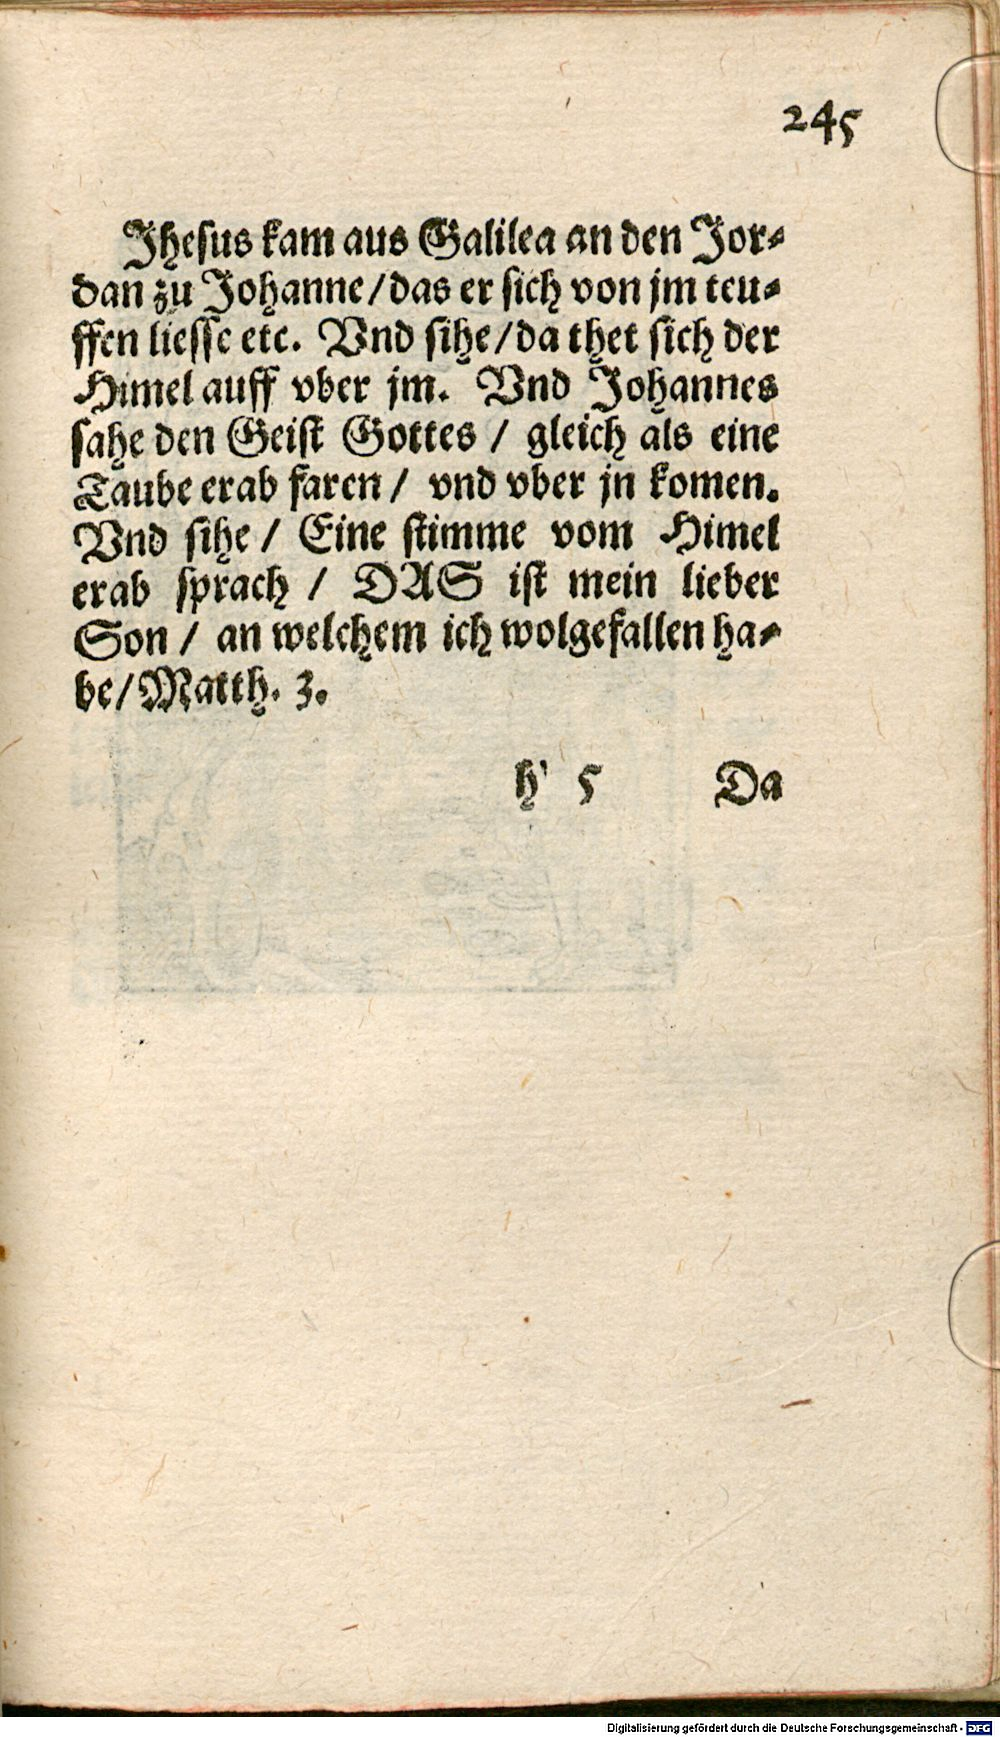 245
Jhesus kam aus Galilea an den Jor-
dan zu Johanne/das er sich von jm teu-
ffen liesse etc. Vnd sihe/da thet sich der
Himel auff vber jm. Vnd Johannes
sahe den Geist Gottes / gleich als eine
Taube erab faren / vnd vber jn komen.
Vnd sihe / Eine stimme vom Himel
erab sprach / DAS ist mein lieber
Son / an welchem ich wolgefallen ha-
be/Matth. 3.
h' 5 Da
Digitalisierung gefördert durch die Deutsche Forschungsgemeinschaft - DFG